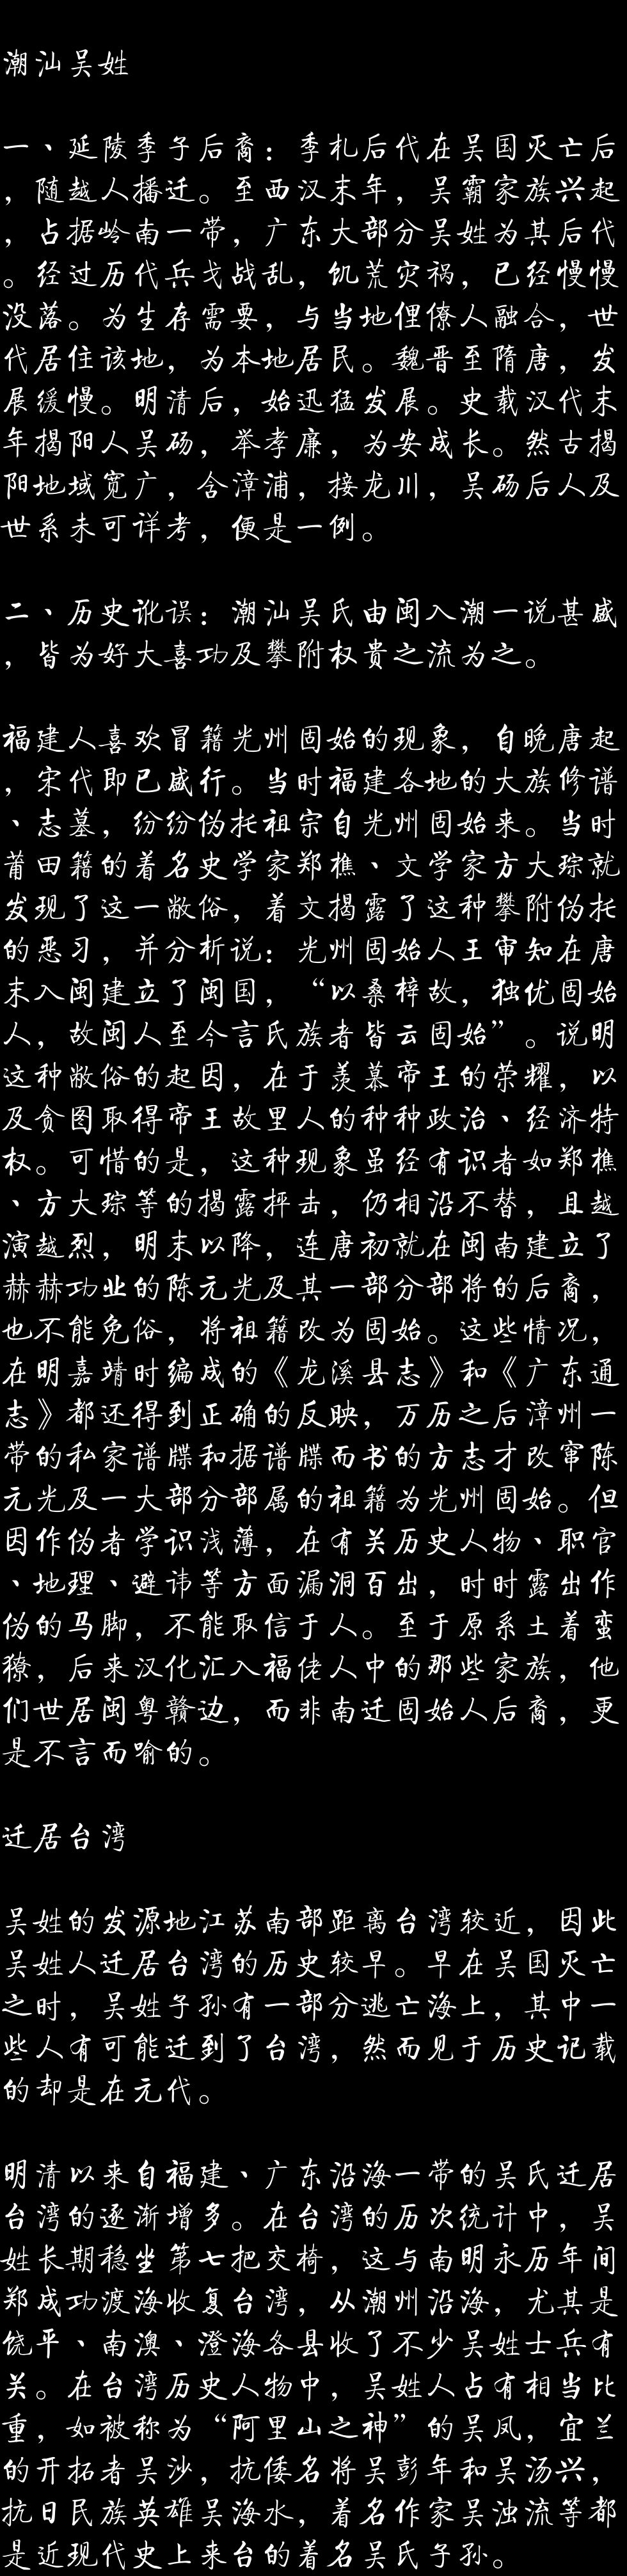 潮汕吴姓
一、延陵季子后裔：季札后代在吴国灭亡后
，随越人播迁。至西汉末年，吴霸家族兴起
，占据岭南一带，广东大部分吴姓为其后代
。经过历代兵戈战乱，饥荒灾祸，已经慢慢
没落。为生存需要，与当地俚僚人融合，世
代居住该地，为本地居民。魏晋至隋唐，发
展缓慢。明清后，始迅猛发展。史载汉代末
年揭阳人吴砀，举孝廉，为安成长。然古揭
阳地域宽广，含漳浦，接龙川，吴砀后人及
世系未可详考，便是一例。
二、历史讹误：潮汕吴氏由闽入潮一说甚盛
，皆为好大喜功及攀附权贵之流为之。
福建人喜欢冒籍光州固始的现象，自晚唐起
，宋代即已盛行。当时福建各地的大族修谱
、志墓，纷纷伪托祖宗自光州固始来。当时
莆田籍的着名史学家郑樵、文学家方大琮就
发现了这一敝俗，着文揭露了这种攀附伪托
的恶习，并分析说：光州固始人王审知在唐
末入闽建立了闽国，“以桑梓故，独优固始
人，故闽人至今言氏族者皆云固始”。说明
这种敝俗的起因，在于羡慕帝王的荣耀，以
及贪图取得帝王故里人的种种政治、经济特
权。可惜的是，这种现象虽经有识者如郑樵
、方大琮等的揭露抨击，仍相沿不替，且越
演越烈，明末以降，连唐初就在闽南建立了
赫赫功业的陈元光及其一部分部将的后裔，
也不能免俗，将祖籍改为固始。这些情况，
在明嘉靖时编成的《龙溪县志》和《广东通
志》都还得到正确的反映，万历之后漳州一
带的私家谱牒和据谱牒而书的方志才改窜陈
元光及一大部分部属的祖籍为光州固始。但
因作伪者学识浅薄，在有关历史人物、职官
、地理、避讳等方面漏洞百出，时时露出作
伪的马脚，不能取信于人。至于原系土着蛮
獠，后来汉化汇入福佬人中的那些家族，他
们世居闽粤赣边，而非南迁固始人后裔，更
是不言而喻的。
迁居台湾
吴姓的发源地江苏南部距离台湾较近，因此
吴姓人迁居台湾的历史较早。早在吴国灭亡
之时，吴姓子孙有一部分逃亡海上，其中一
些人有可能迁到了台湾，然而见于历史记载
的却是在元代。
明清以来自福建、广东沿海一带的吴氏迁居
台湾的逐渐增多。在台湾的历次统计中，吴
姓长期稳坐第七把交椅，这与南明永历年间
郑成功渡海收复台湾，从潮州沿海，尤其是
饶平、南澳、澄海各县收了不少吴姓士兵有
关。在台湾历史人物中，吴姓人占有相当比
重，如被称为“阿里山之神”的吴凤，宜兰
的开拓者吴沙，抗倭名将吴彭年和吴汤兴，
抗日民族英雄吴海水，着名作家吴浊流等都
是近现代史上来台的着名吴氏子孙。